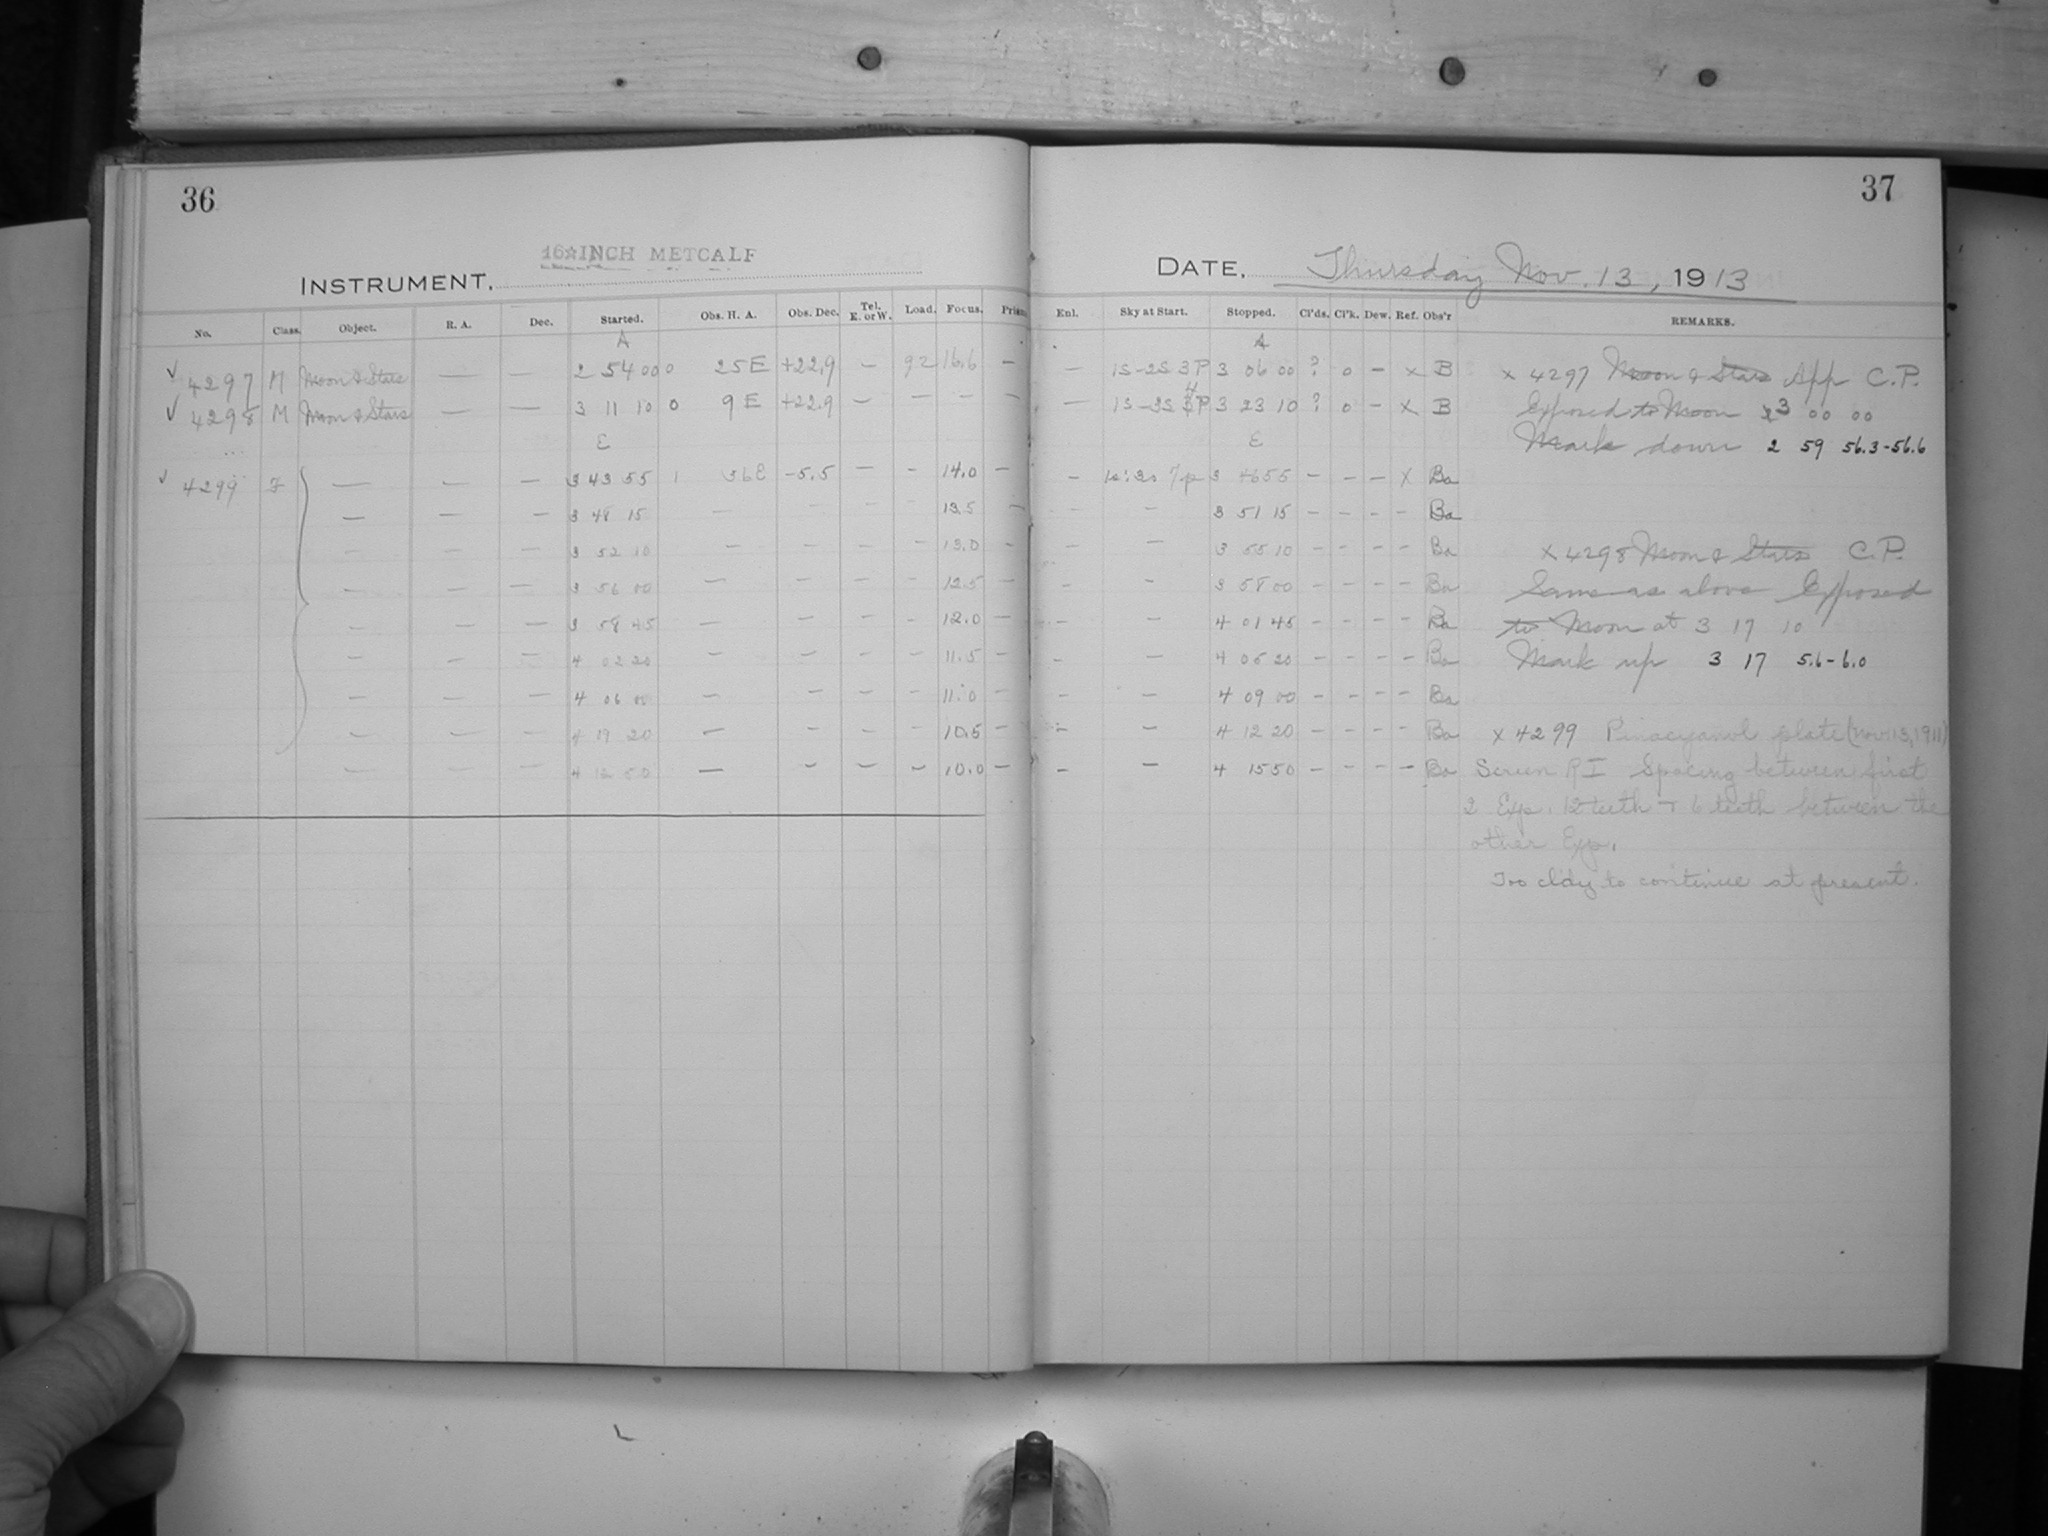 36
16-INCH METCALF
INSTRUMENT,
No. Class. Object. R. A. Dec. Started. Obs. H. A. Obs. Dec. Tel. E. or W. Load. Focus. Prism
A
✓ 4297 M Moon & Stars — — 2 54 00 0 25 E +22.9 — 92 16.6 —
✓ 4298 M Moon & Stars — — 3 11 10 0 9 E +22.9 — — — —
E
✓ 4299 F — — — 3 43 55 1 36 E -5.5 — - 14.0 —
— — — 3 48 15 — - - - 13.5 —
— — — 3 52 10 — - - - 13.0 —
— — — 3 56 00 — - - - 12.5 —
— — — 3 58 45 — - - - 12.0 —
— — — 4 02 20 — - - - 11.5 —
— — — 4 06 00 — - - - 11.0 —
— — — 4 19 20 — - - - 10.5 —
— — — 4 12 50 — - - - 10.0 —
37
DATE, Thursday Nov. 13, 1913
Enl. Sky at Start. Stopped. Cl'ds. Cl'k. Dew. Ref. Obs'r REMARKS.
A
— 1S-2S 3P 3 06 00 ? 0 - x B
4
— 1S-2S 3P 3 23 10 ? 0 - x B
E
— 3 46 55 - - - x Ba
— — 3 51 15 - - - - Ba
— — 3 55 10 - - - - Ba
— — 3 58 00 - - - - Ba
— — 4 01 45 - - - - Ba
— — 4 05 20 - - - - Ba
— — 4 09 00 - - - - Ba
— — 4 12 20 - - - - Ba
— — 4 15 50 - - - - Ba
x 4297 Moon & Stars App C.P.
Exposed to Moon 3 00 00
Mark down 2 59 56.3-56.6
x 4298 Moon & Stars C.P.
Same as above Exposed
to Moon at 3 17 10
Mark up 3 17 5.6-6.0
x 4299 Pinacyanol plate (Nov 13, 1911)
Screen R I Spacing between first
2 Exp. 12 teeth + 6 teeth between the
other Exp.
Too cl'dy to continue at present.